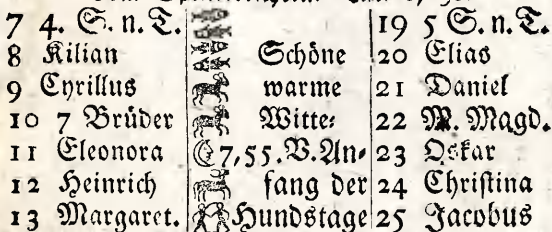 7 4. S. n. T. 19 5 S. n. T.
8 Kilian Schöne 20 Elias
9 Cyrillus warme 21 Daniel
10 7 Brüder Witte⸗ 22 M. Magd.
11 Eleonora ☾7,55. V. An⸗ 23 Oskar
12 Heinrich fang der 24 Christina
13 Margaret. Hundstage 25 Jacobus